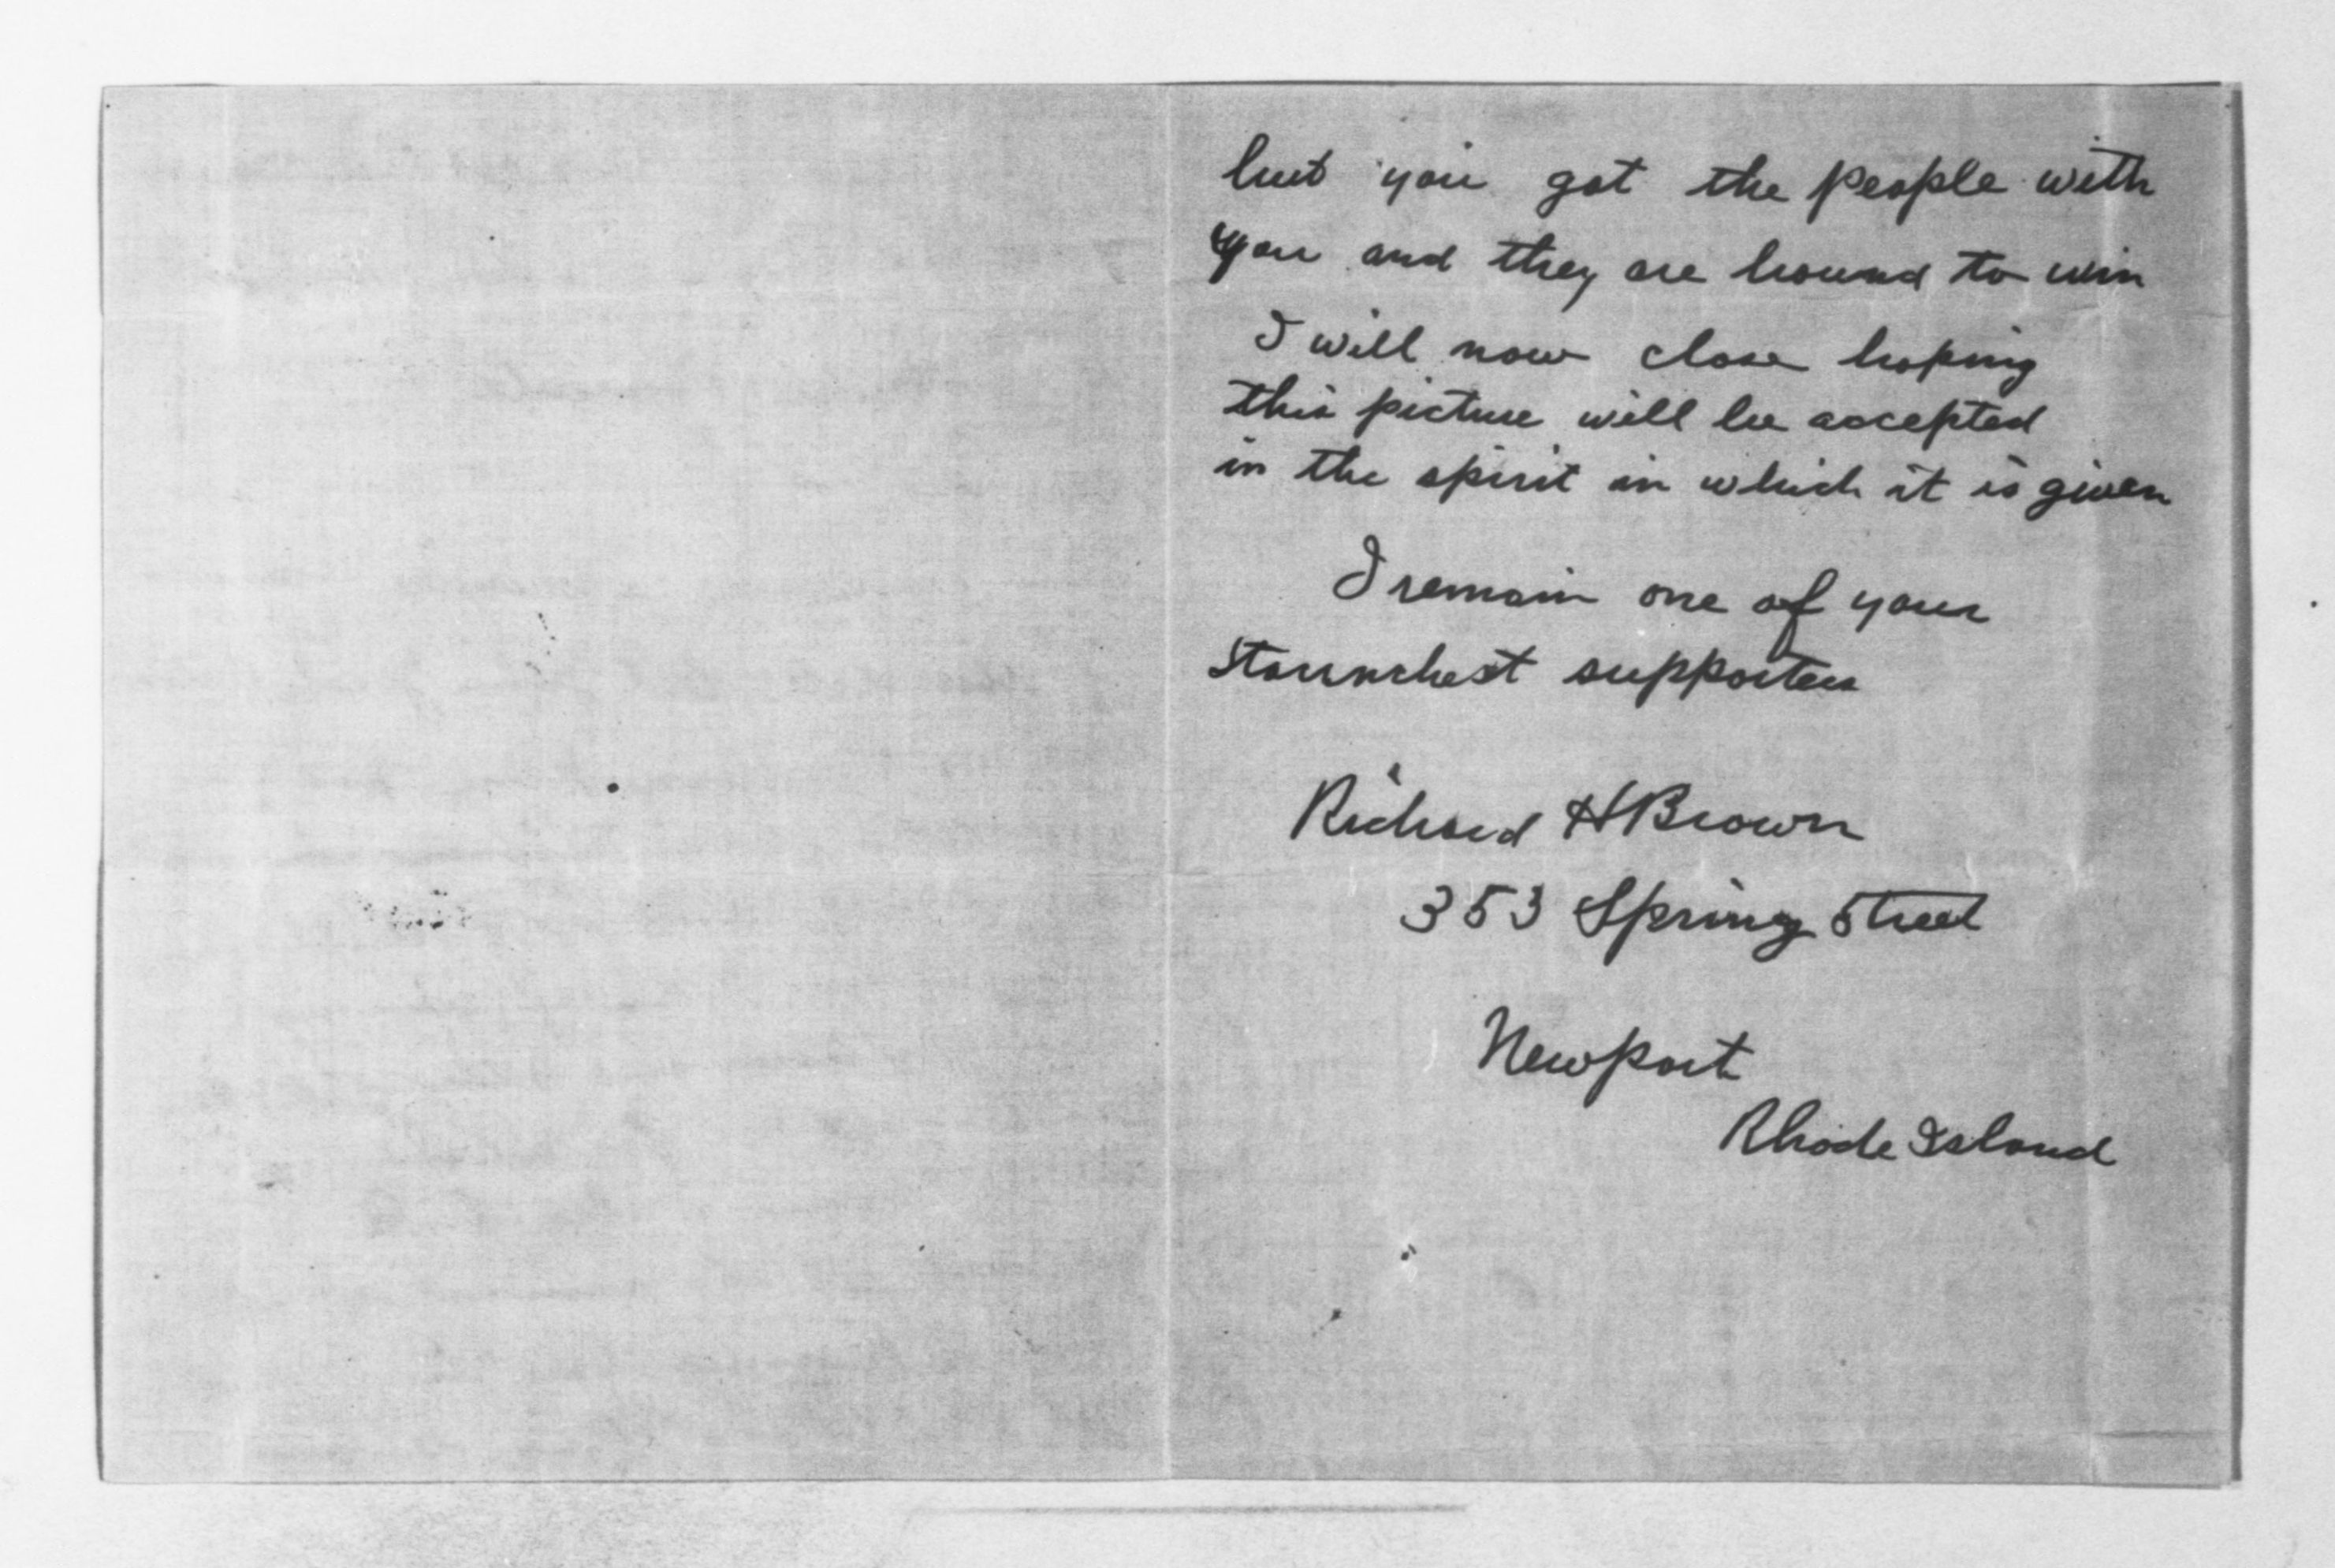 but you got the people with
you and they are bound to win
I will now close hoping
this picture will be accepted
in the spirit in which it is given
I remain one of your
staunchest supporters
Richard H Brown
353 Spring Street
Newport
Rhode Island